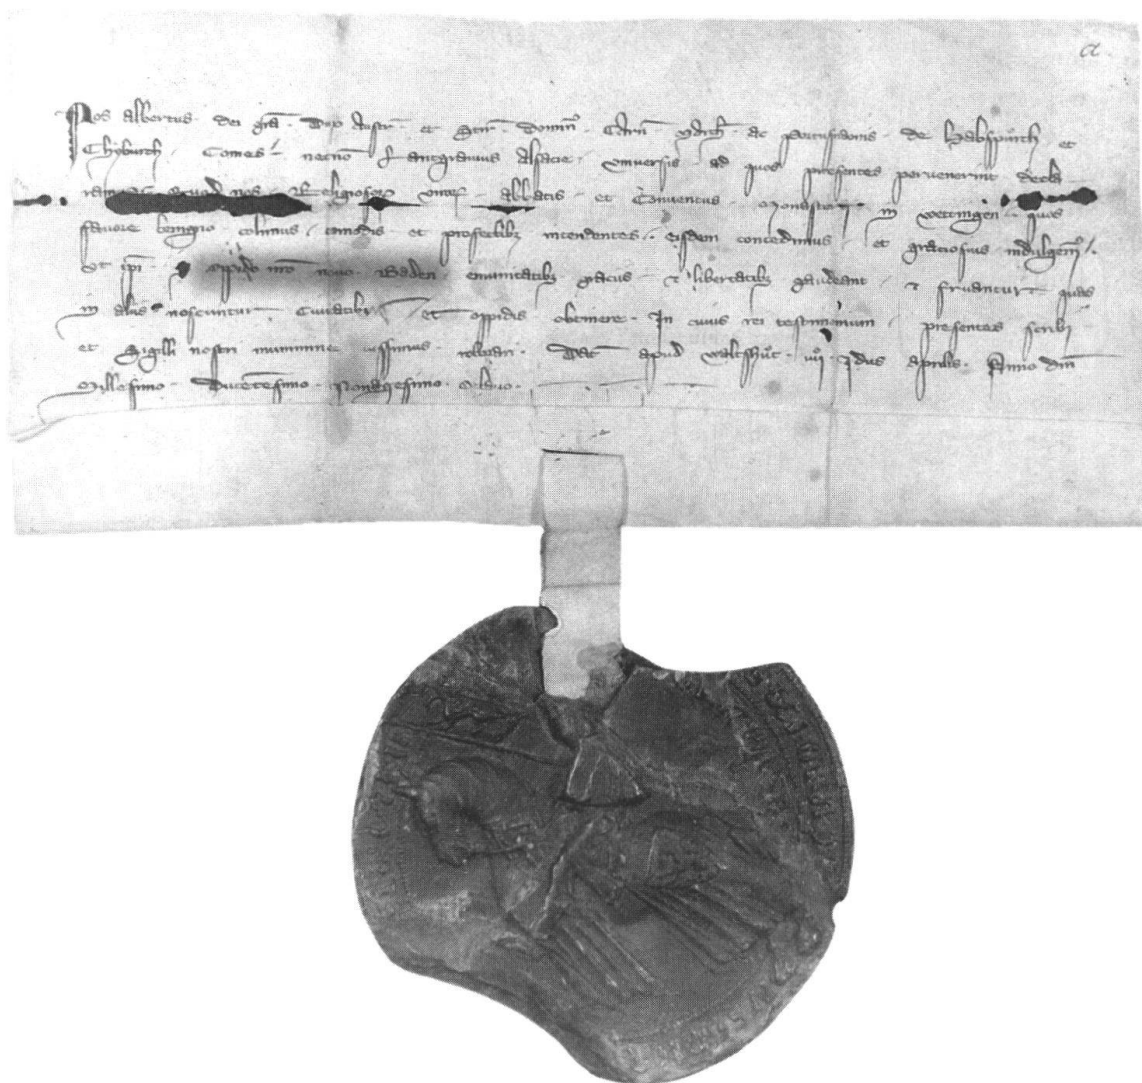 a
Nos Albertus dei grā. Dux Austr̄. et Stir̄. dominꝰ. Carn̄. Marcħ. ac Portusnaonis. de Habspurch et
Chyburch. Comes. necnō Lantgravius Alsacie. Universis ad quos presentes pervenerint decla
quod nos. Religiosoꝝ viroꝝ. abbatis. et Conventus. Monasterij. in Wettingen. quos
favore benigno. colimus. comodis et profectibꝫ intendentes. eisdem concedimus. et graciosius indulgemꝰ.
ut ipi. oppido nr̄o novo. Baden. emunitatibꝫ graciis. et libertatibꝫ gaudeant. et fruantur. quas
in aliis noscuntur. Civitatibꝫ. et oppidis obtinere. In cuius rei testimonium. presentes scribi
et Sigilli nostri munimine iussimus. roborari. Dat̄. apud Waltzhůt. iiij. Idus aprilis. Anno dn̄i
Millesimo. Ducētesimo. Nonagesimo. Octavo.